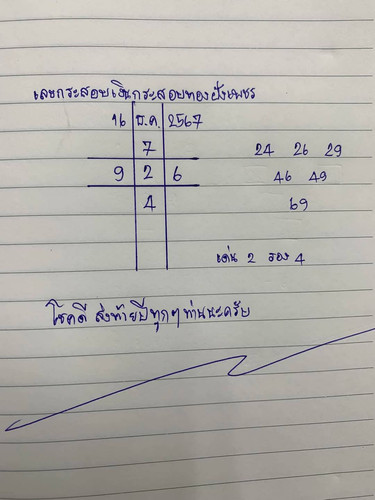 เลขกระสอบเงินกระสอบทองฝังเพชร
16 ธ.ค. 2567
7
24 26 29
9 2 6
46 49
4
69
เด่น 2 รอง 4
โชคดี ส่งท้ายปีทุกๆท่านนะครับ